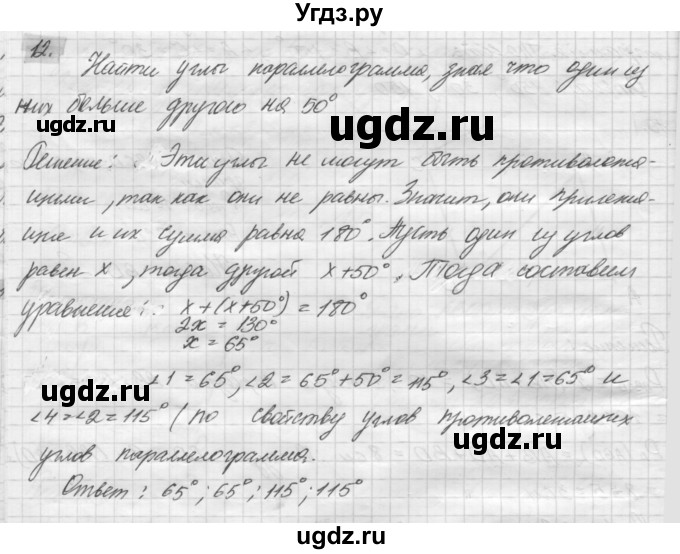 Угдз.ру
12.
Найти углы параллелограмма, зная что один из
них больше другого на 50°
ugdz.ru
Решение: Эти углы не могут быть противолежа-
щими, так как они не равны. Значит, они прилежа-
щие и их сумма равна 180°. Пусть один из углов
равен x, тогда другой x+50°. Тогда составим
уравнение: x+(x+50°)=180°
2x=130°
x=65°
ugdz.ru
∠1=65°, ∠2=65°+50°=115°, ∠3=∠1=65° и
ugdz.ru
∠4=∠2=115° (по свойству углов противолежащих
углов параллелограмма.
ugdz.ru
Ответ: 65°; 65°; 115°; 115°
ugdz.ru
ugdz.ru